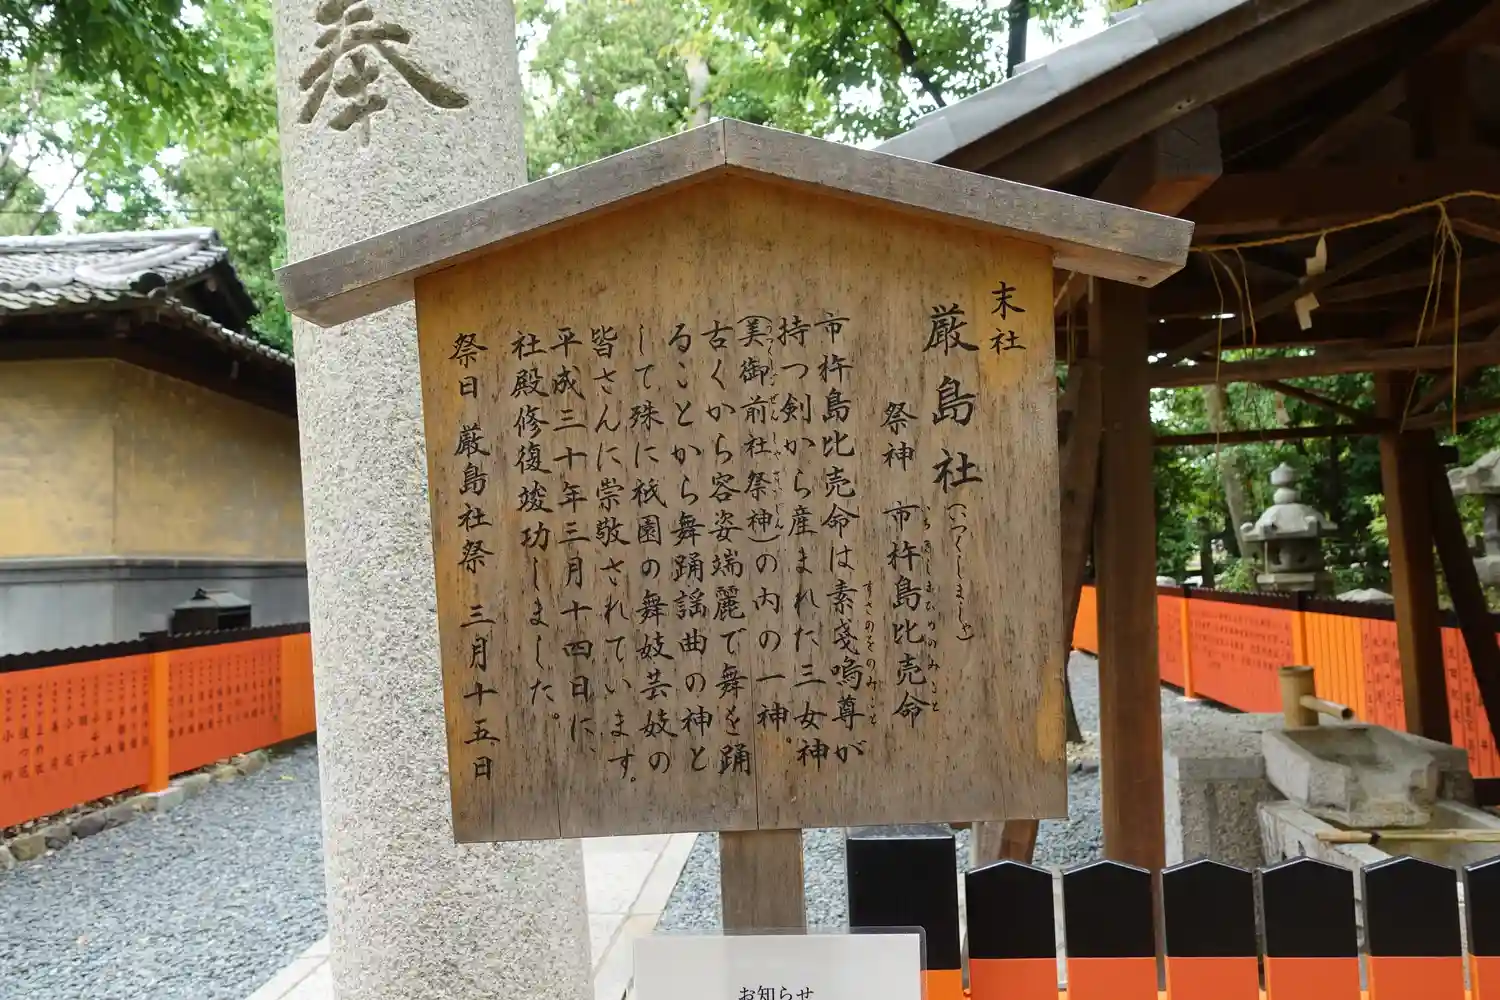 末社
厳島社(いつくしましゃ)
祭神 市杵島比売命
いちきしまひめのみこと
市杵島比売命は素戔嗚尊が
すさのをのみこと
持つ剣から産まれた三女神
(美御前社祭神)の内の一神。
うつくしごぜんしゃさいじん
古くから容姿端麗で舞を踊
ることから舞踊謡曲の神と
して殊に祇園の舞妓芸妓の
皆さんに崇敬されています。
平成三十年三月十四日に、
社殿修復竣功しました。
祭日 厳島社祭 三月十五日
奉
お知らせ